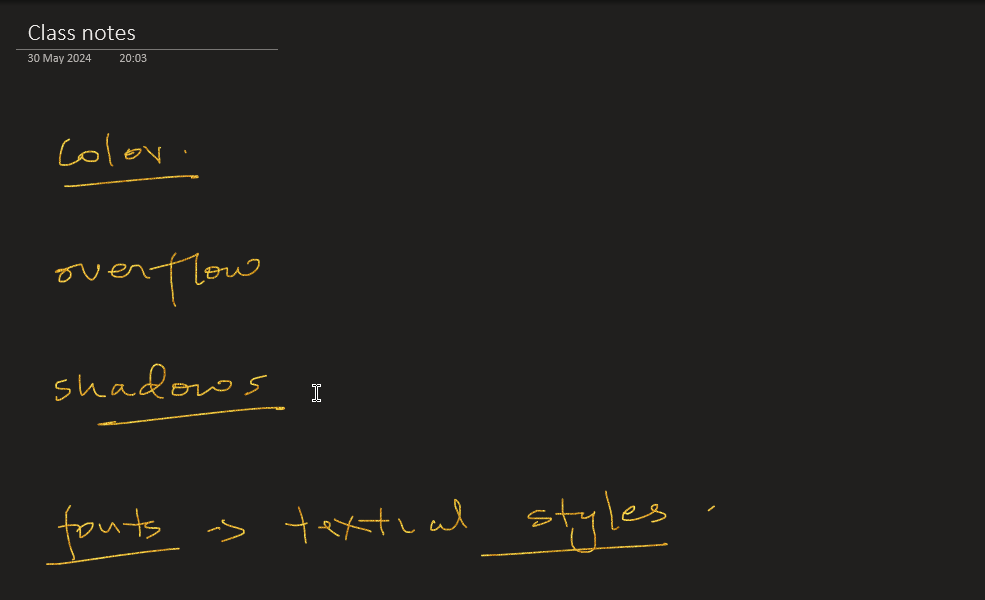 Class notes
30 May 2024 20:03
Color.
overflow
shadows
fonts -> textual styles.